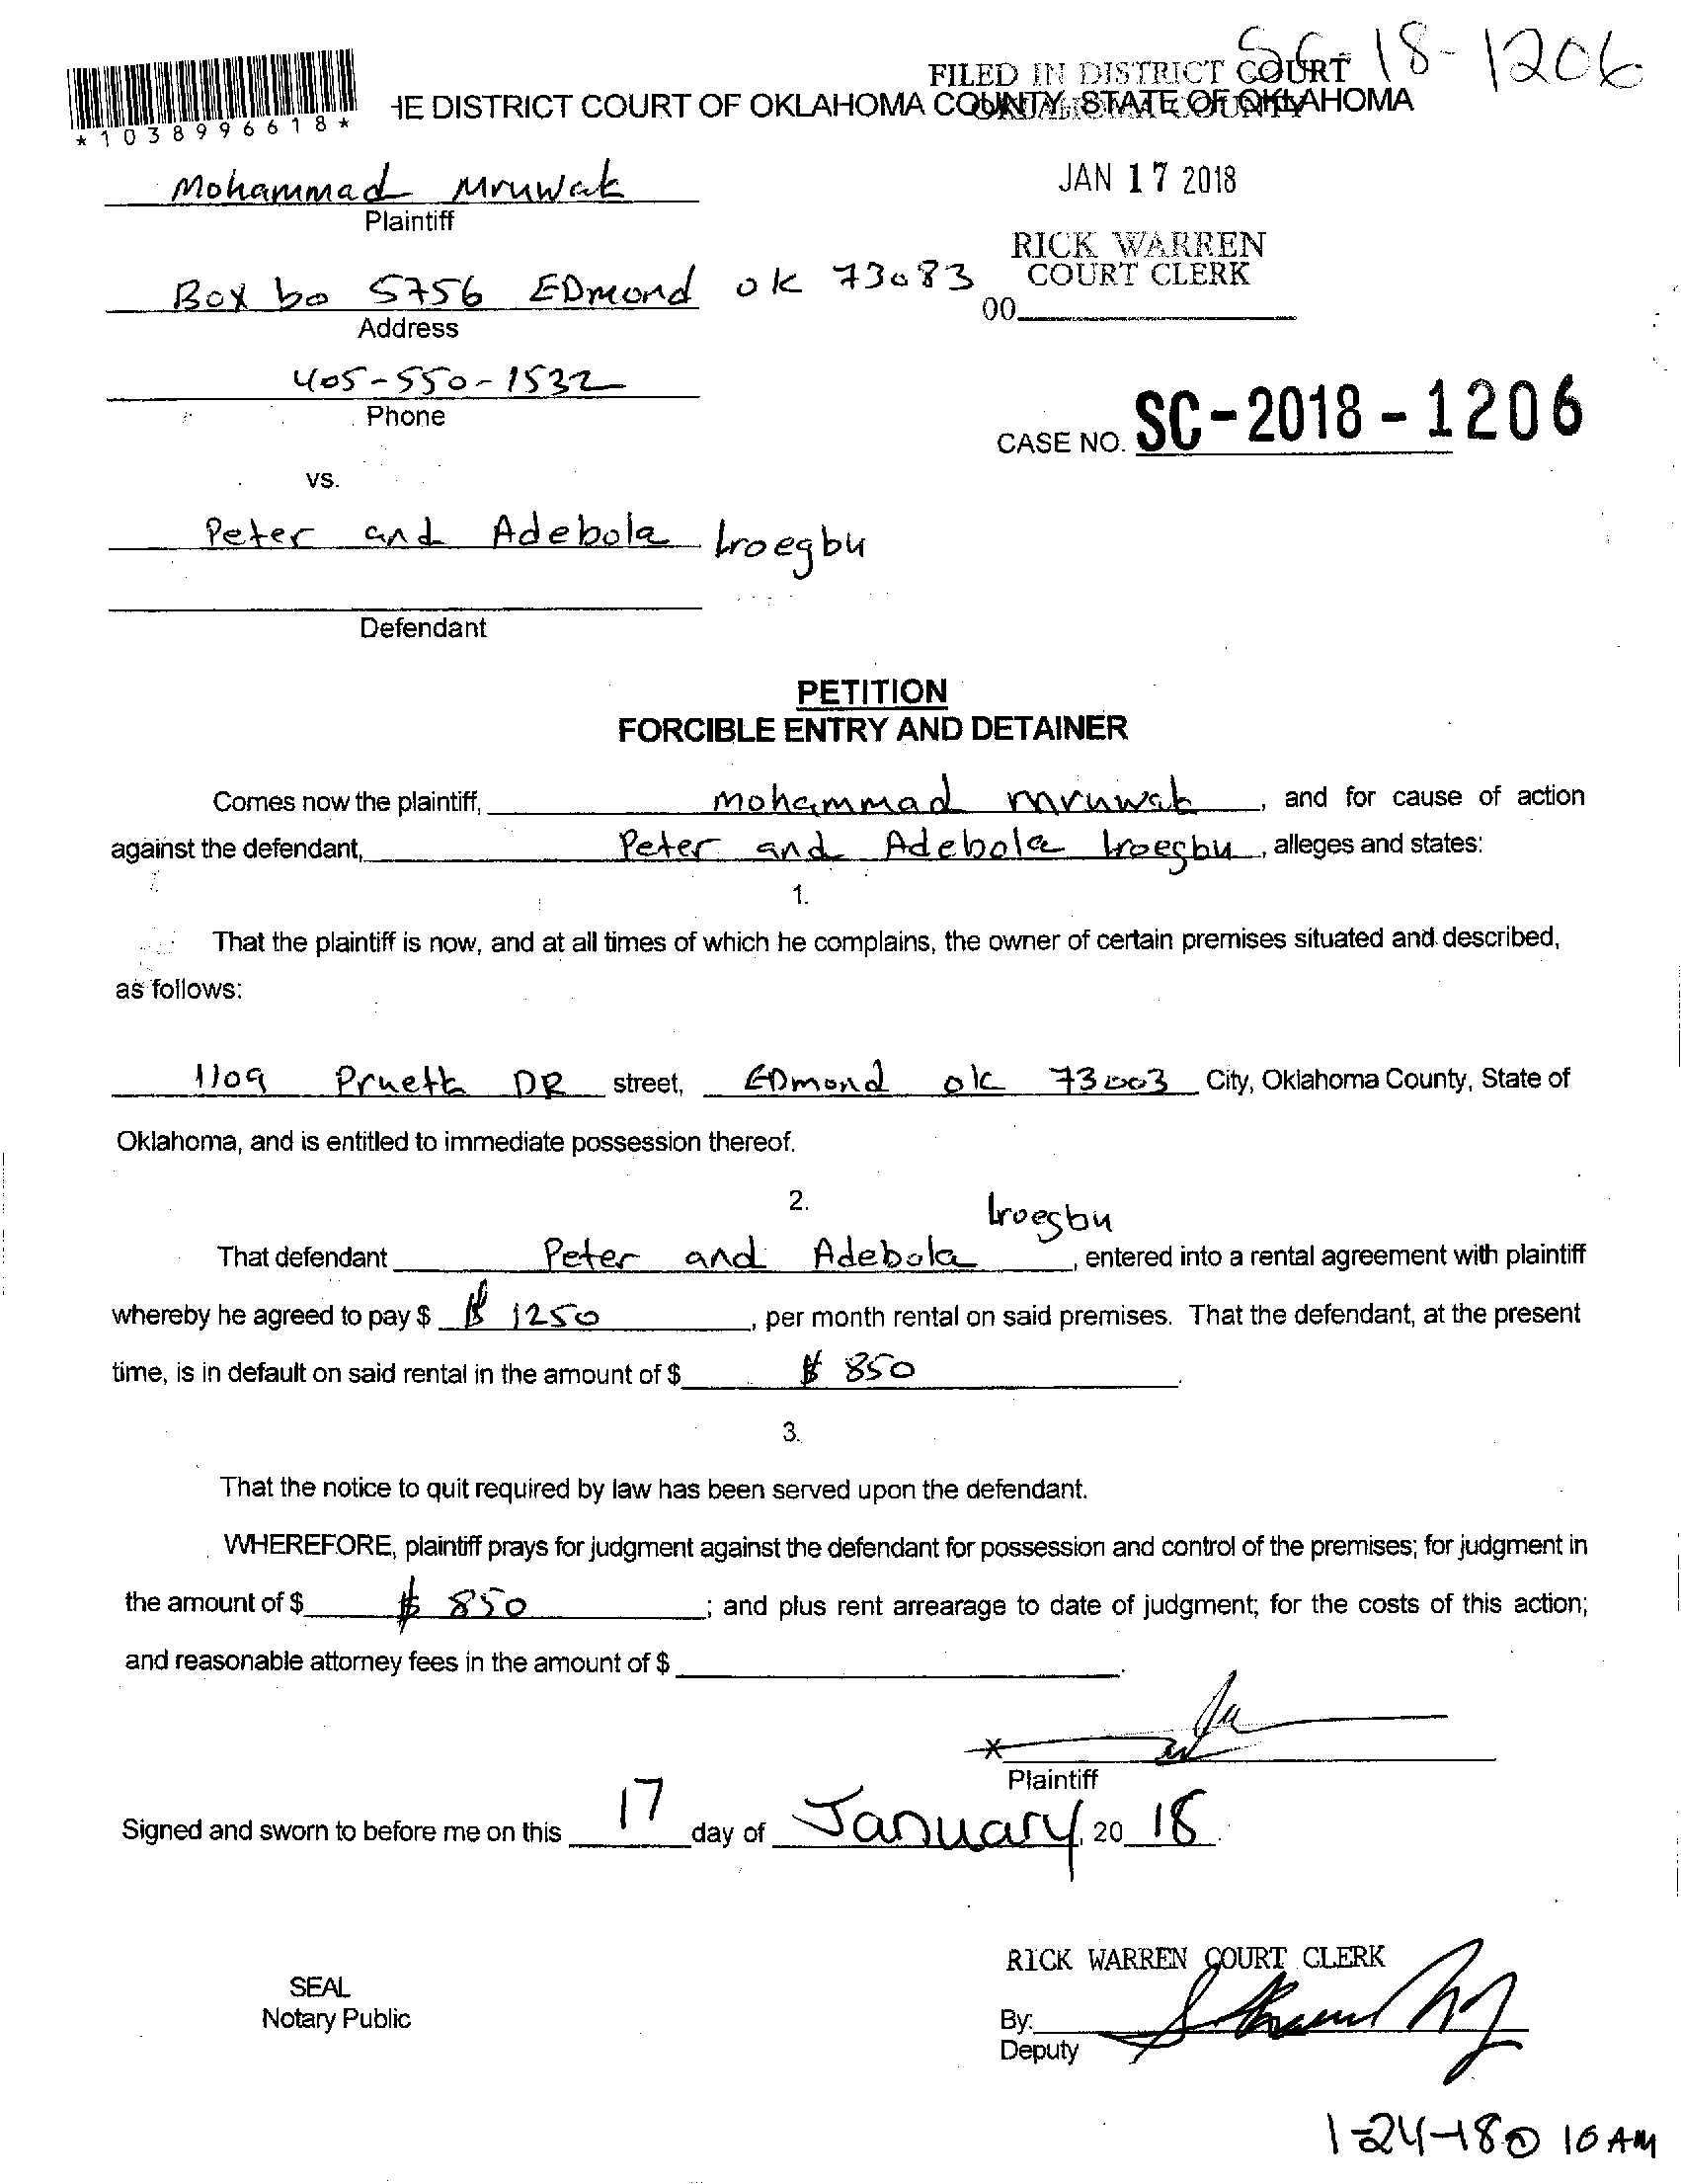 SC-18-1206
FILED IN DISTRICT COURT
HE DISTRICT COURT OF OKLAHOMA COUNTY, STATE OF OKLAHOMA
*1038996618*
Mohammad Mruwak
Plaintiff
JAN 17 2018
RICK WARREN
COURT CLERK
Box bo 5756 EDmond ok 73083
00
Address
405-550-1532
Phone
CASE NO. SC-2018-1206
vs.
Peter and Adebola Iroegbu
Defendant
PETITION
FORCIBLE ENTRY AND DETAINER
Comes now the plaintiff, Mohammad mruwak, and for cause of action
against the defendant, Peter and Adebola Iroegbu, alleges and states:
1.
That the plaintiff is now, and at all times of which he complains, the owner of certain premises situated and described,
as follows:
1109 Pruett DR street, EDmond ok 73003 City, Oklahoma County, State of
Oklahoma, and is entitled to immediate possession thereof.
2.
Iroegbu
That defendant Peter and Adebola, entered into a rental agreement with plaintiff
whereby he agreed to pay $ $ 1250, per month rental on said premises. That the defendant, at the present
time, is in default on said rental in the amount of $ $ 850.
3.
That the notice to quit required by law has been served upon the defendant.
WHEREFORE, plaintiff prays for judgment against the defendant for possession and control of the premises; for judgment in
the amount of $ $ 850; and plus rent arrearage to date of judgment; for the costs of this action;
and reasonable attorney fees in the amount of $ .
x
Plaintiff
Signed and sworn to before me on this 17 day of January, 20 18.
RICK WARREN COURT CLERK
SEAL
Notary Public
By:
Deputy
1-24-18@ 10 AM